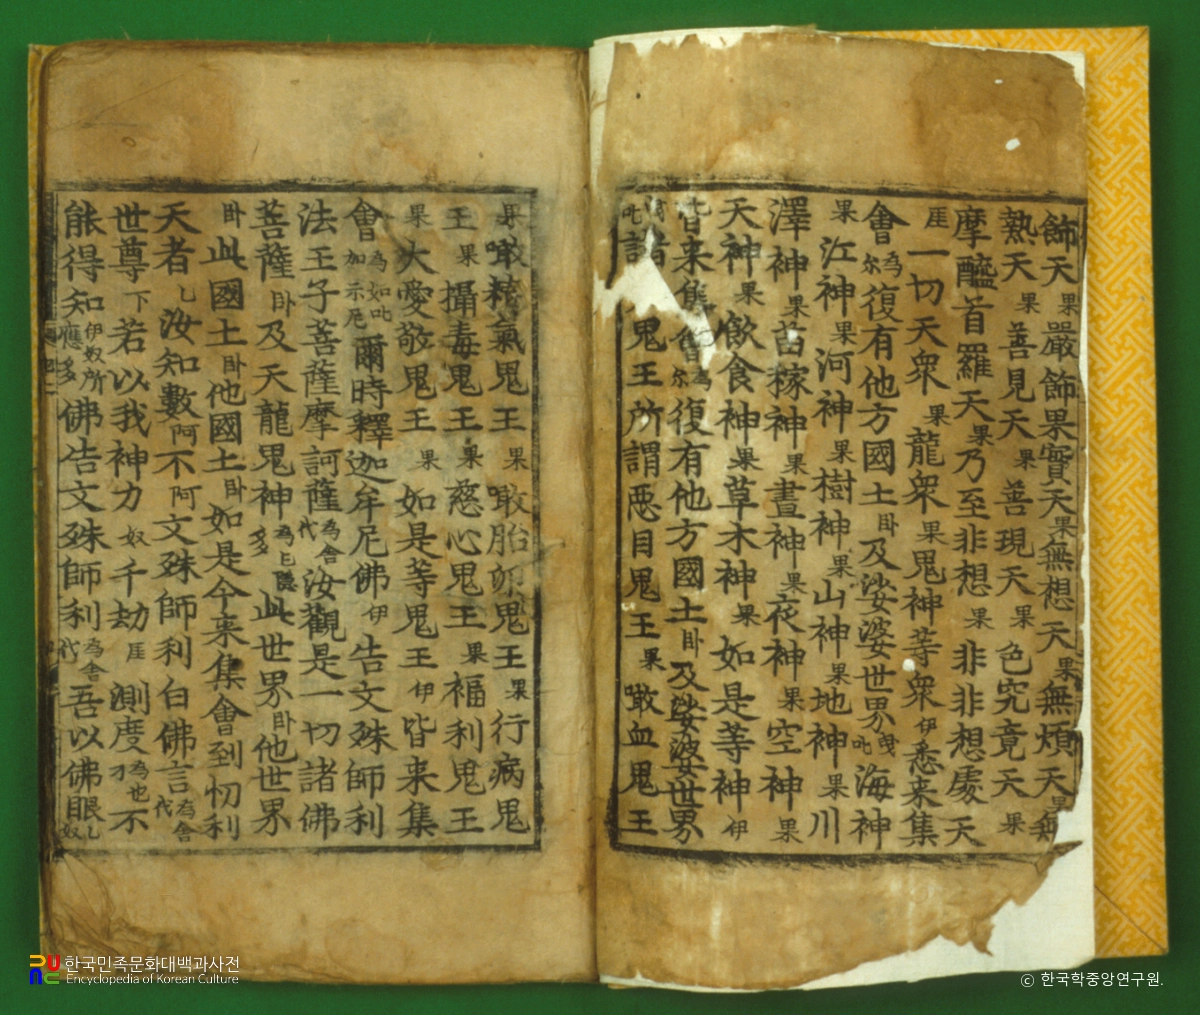 飾天果嚴飾果實天果無想天果無煩天果無
熱天果善見天果善現天果色究竟天果
摩醯首羅天果乃至非想果非非想處天
厓一切天衆果龍衆果鬼神等衆伊悉来集
會為尔復有他方國土卧及娑婆世界叱海神
果江神果河神果樹神果山神果地神果川
澤神果苗稼神果晝神果夜神果空神果
天神果飮食神果草木神果如是等神伊
皆来集會為尔復有他方國土卧及娑婆世界
叱諸鬼王所謂惡目鬼王果噉血鬼王
果噉精氣鬼王果噉胎卵鬼王果行病鬼
王果攝毒鬼王果慈心鬼王果福利鬼王
果大愛敬鬼王果如是等鬼王伊皆来集
會為如叱加示尼爾時釋迦牟尼佛伊告文殊師利
法王子菩薩摩訶薩為舍代汝觀是一切諸佛
菩薩卧及天龍鬼神為已隱多此世界卧他世界
卧此國土卧他國土卧如是今来集會到忉利
天者乚汝知數阿不阿文殊師利白佛言為舍代
世尊下若以我神力奴千劫厓測度為也才不
能得知伊奴所應多佛告文殊師利為舍代吾以佛眼乚奴
한국민족문화대백과사전
Encyclopedia of Korean Culture
ⓒ 한국학중앙연구원.